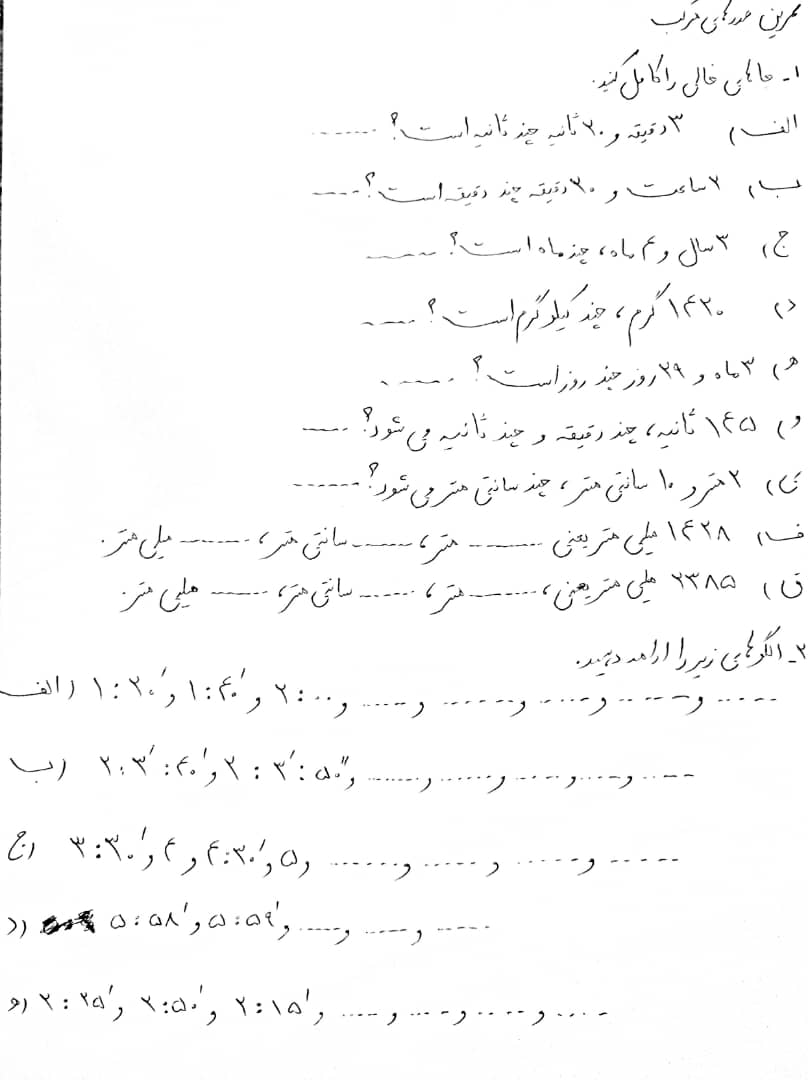 تمرین عددهای مرکب
۱ـ جاهای خالی را کامل کنید.
الف) ۳ دقیقه و ۲۰ ثانیه چند ثانیه است؟ .......
ب) ۲ ساعت و ۲۰ دقیقه چند دقیقه است؟ .....
ج) ۳ سال و ۴ ماه، چند ماه است؟ ......
د) ۱۴۲۰ گرم، چند کیلوگرم است؟ .....
هـ) ۳ ماه و ۲۹ روز چند روز است؟ ......
و) ۱۴۵ ثانیه، چند دقیقه و چند ثانیه می شود؟ .....
ی) ۲ متر و ۱۰ سانتی متر، چند سانتی متر می شود؟ .......
ف) ۱۴۲۸ میلی متر یعنی ....... متر، ....... سانتی متر، ....... میلی متر.
ق) ۲۳۸۵ میلی متر یعنی، ....... متر، ....... سانتی متر، ....... میلی متر.
۲ـ الگوهای زیر را ادامه دهید.
الف) ۱:۲۰′ و ۱:۴۰′ و ۲:۰۰ و ..... و ..... و ....... و ..... و ...... و ......
ب) ۲:۳′:۴۰′ و ۲:۳′:۵۰″ و ....... و ....... و ..... و ..... و ..... و ....
ج) ۳:۳۰′ و ۴ و ۴:۳۰′ و ۵ و ....... و ...... و ...... و ......
د) ۵:۵۸′ و ۵:۵۹′ و ..... و ..... و ......
و) ۲:۲۵′ و ۲:۵۰′ و ۲:۱۵′ و ..... و ..... و ..... و .....